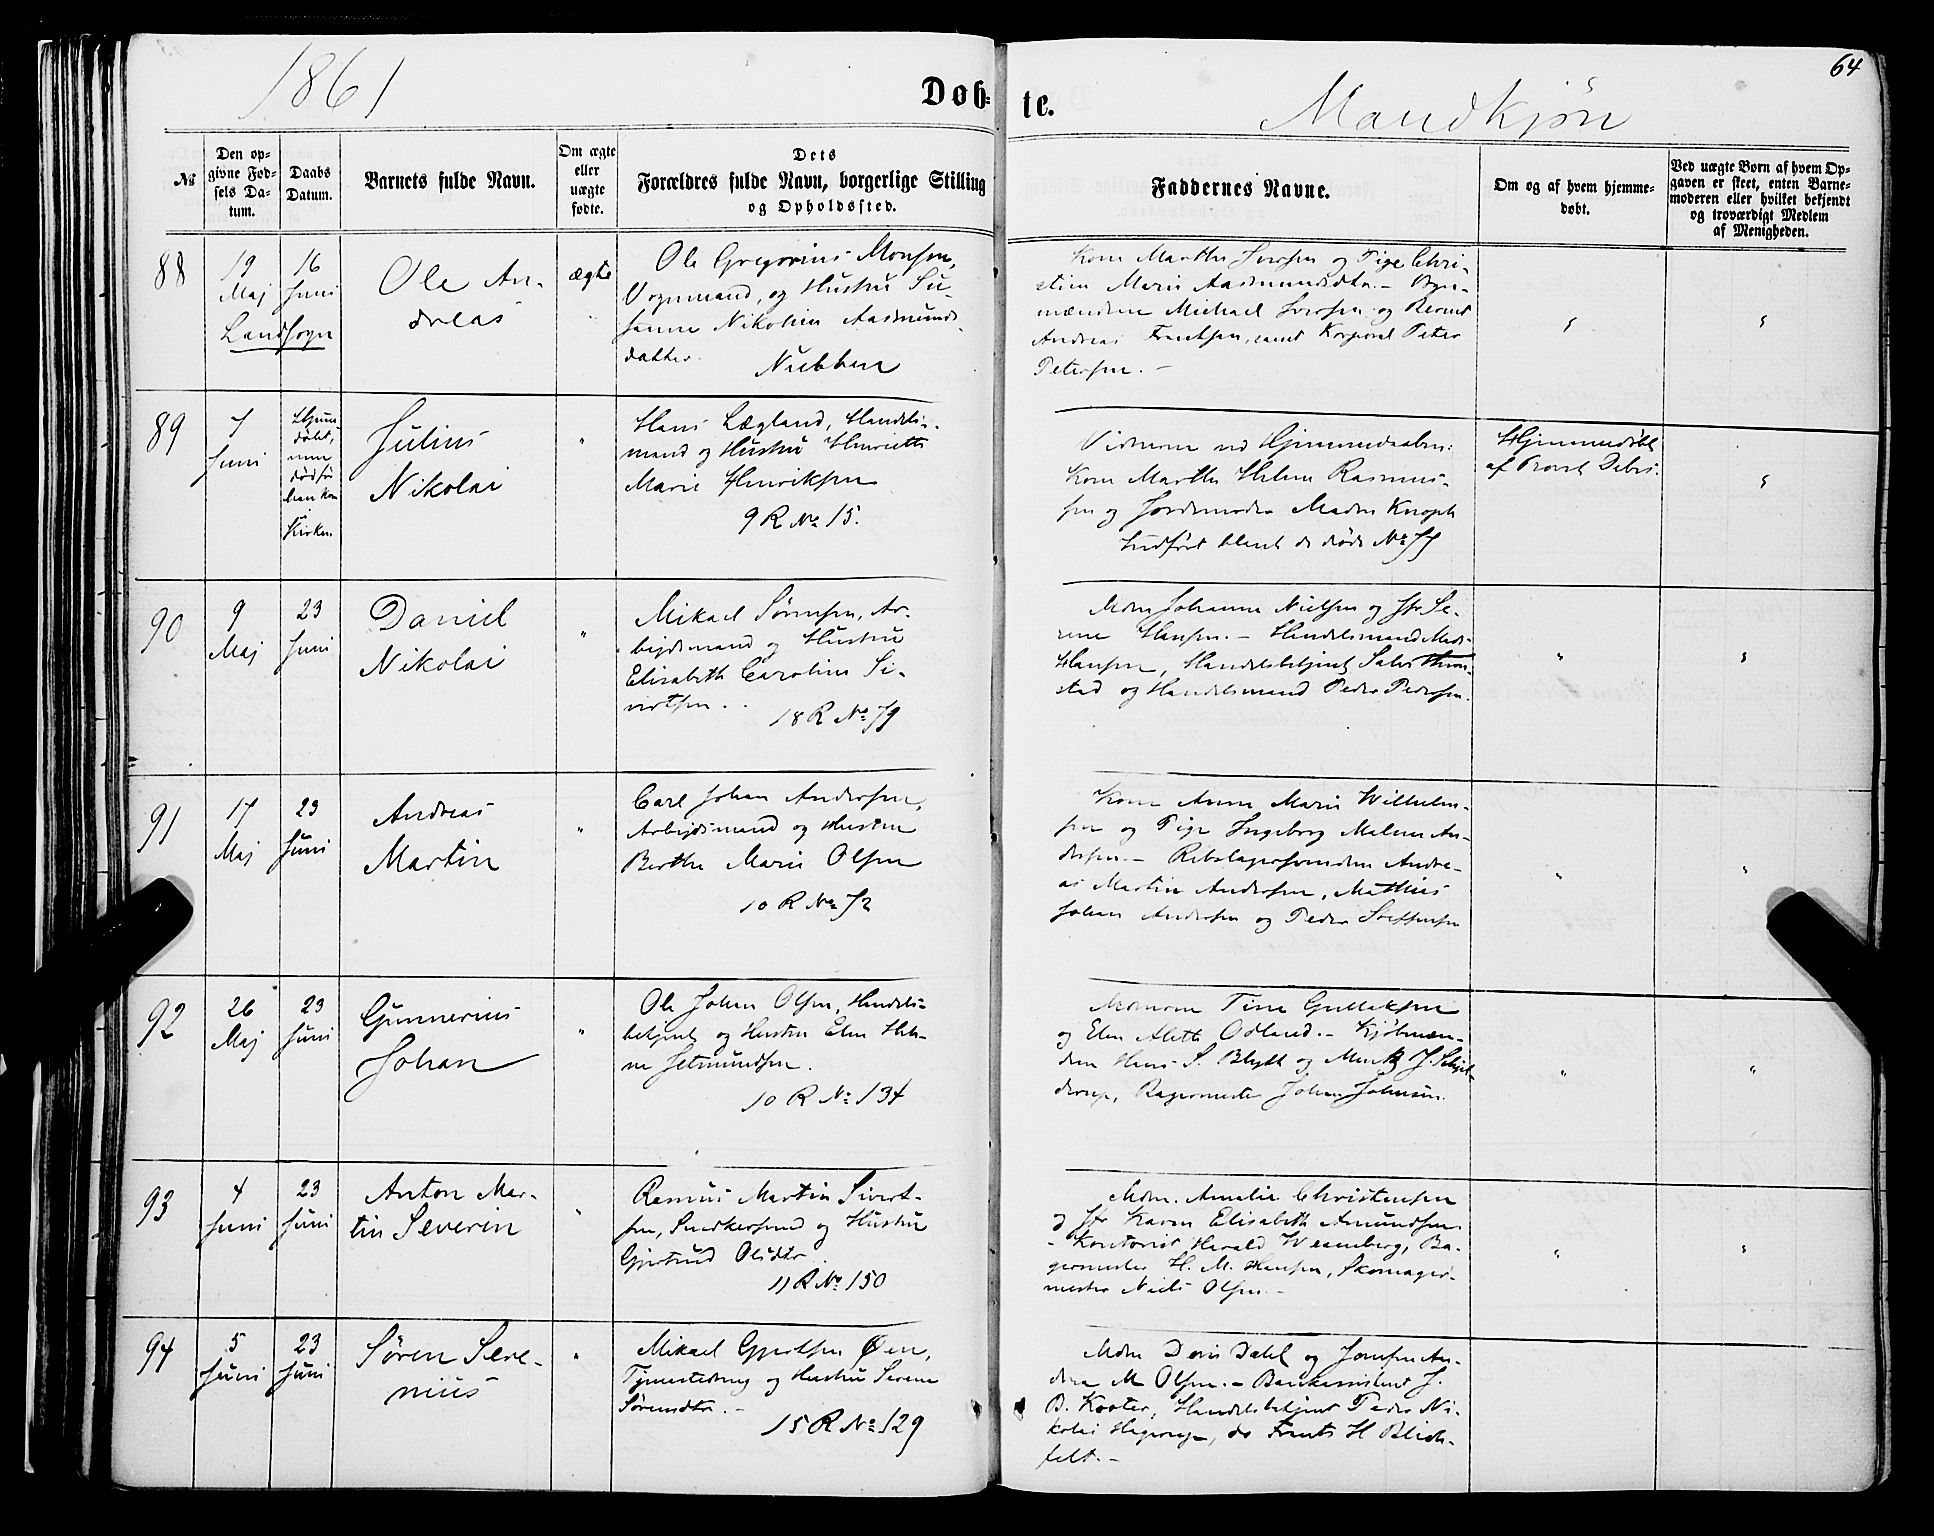 1861
Døb-
te.
Mandkjøn
64
№
Den op-
givne Fød-
sels Da-
tum.
Daabs
Datum.
Barnets fulde Navn.
Om ægte
eller
uægte
fødte.
Dets
Forældres fulde Navn, borgerlige Stilling
og Opholdssted.
Faddernes Navne.
Om og af hvem hjemme-
døbt.
Ved uægte Børn af hvem Op-
gaven er skeet, enten Barne-
moderen eller hvilket bekjendt
og troværdigt Medlem
af Menigheden.
88
19
Maj
16
Juni
Landsogn
Ole An-
dreas
ægte
Ole Gregorius Monsen,
Vognmand, og Hustru Su-
sanne Nikoline Aasmunds-
datter.
Nubben
Kone Marthe Iversen og Pige Chri-
stine Marie Aasmundsdtr. -
Michael Iversen og Bernt
Andreas Frantsen, samt Korporal Peter
Petersen. -
89
7
Juni
Hjemme-
døbt,
men
død før
han kom
i
Kirken
Julius
Nikolai
"
Hans Lægland, Handels-
mand og Hustru Henriette
Marie Henriksen
9 R № 15.
Vidnerne ved Hjemmedaaben:
Kone Marthe Helene Rasmus-
sen og Jordemoder Madm Knoph
Indført blant de døde № 77
Hjemmedøbt
af Provst Debes.
90
9
Maj
23
Juni
Daniel
Nikolai
"
Mikael Sørensen, Ar-
bejdsmand og Hustru
Elisabeth Caroline Si-
vertsen. .
18 R № 79
Mdm Johanne Nielsen og Jfr Se-
rine Hansen. - Handelsmand Mads
Hansen, Handelsbetjent Salve
stad og Handelsmand Peder Pedersen.
"
91
17
Maj
23
Juni
Andreas
Martin
"
Carl Johan Andersen,
Arbejdsmand og Hustru
Berthe Marie Olsen
10 R № 72
Kone Anne Marie Wilhelm-
sen og Pige Ingeborg Malene An-
dersen. - Rebslagersvendene Andre-
as Martin Andersen, Mathias
Johan Andersen og Peder Steffensen
"
92
26
Maj
23
Juni
Gunnerius
Johan
"
Ole Johan Olsen, Handels-
betjent og Hustru Elen Hele-
ne Jetmundsen.
10 R № 134
Mdmerne Tine Gullaksen
og Elen Alette Odland. - Kjøbmæn-
dene Hans S. Blytt og Mentz J. Schjel-
derup, Bagermester Johan Johnsen.
"
"
93
4
Juni
23
Juni
Anton Mar-
tin Severin
"
Rasmus Martin Sivert-
sen, Snedkersvend og Hustru
Gjertrud Olsdtr
11 R № 150
Mdm. Amalie Christensen
og Jfr Karen Elisabeth Amundsen.
- Kontorist Harald Wesenberg, Ba-
germester H. M. Hansen, Skomager-
mester Niels Olsen. -
"
94
5
Juni
23
Juni
Søren Seve-
rius
"
Mikael Gjertsen Øen,
og Hustru Serene
Sørensdtr. -
15 R № 129
Mdm Doris Dahl og Jomfru An-
drea M Olsen. - Bankassistent J.
B. Koster, Handelsbetjent Peder Ni-
kolai Hagerup, do Frants H Blich-
feldt. -